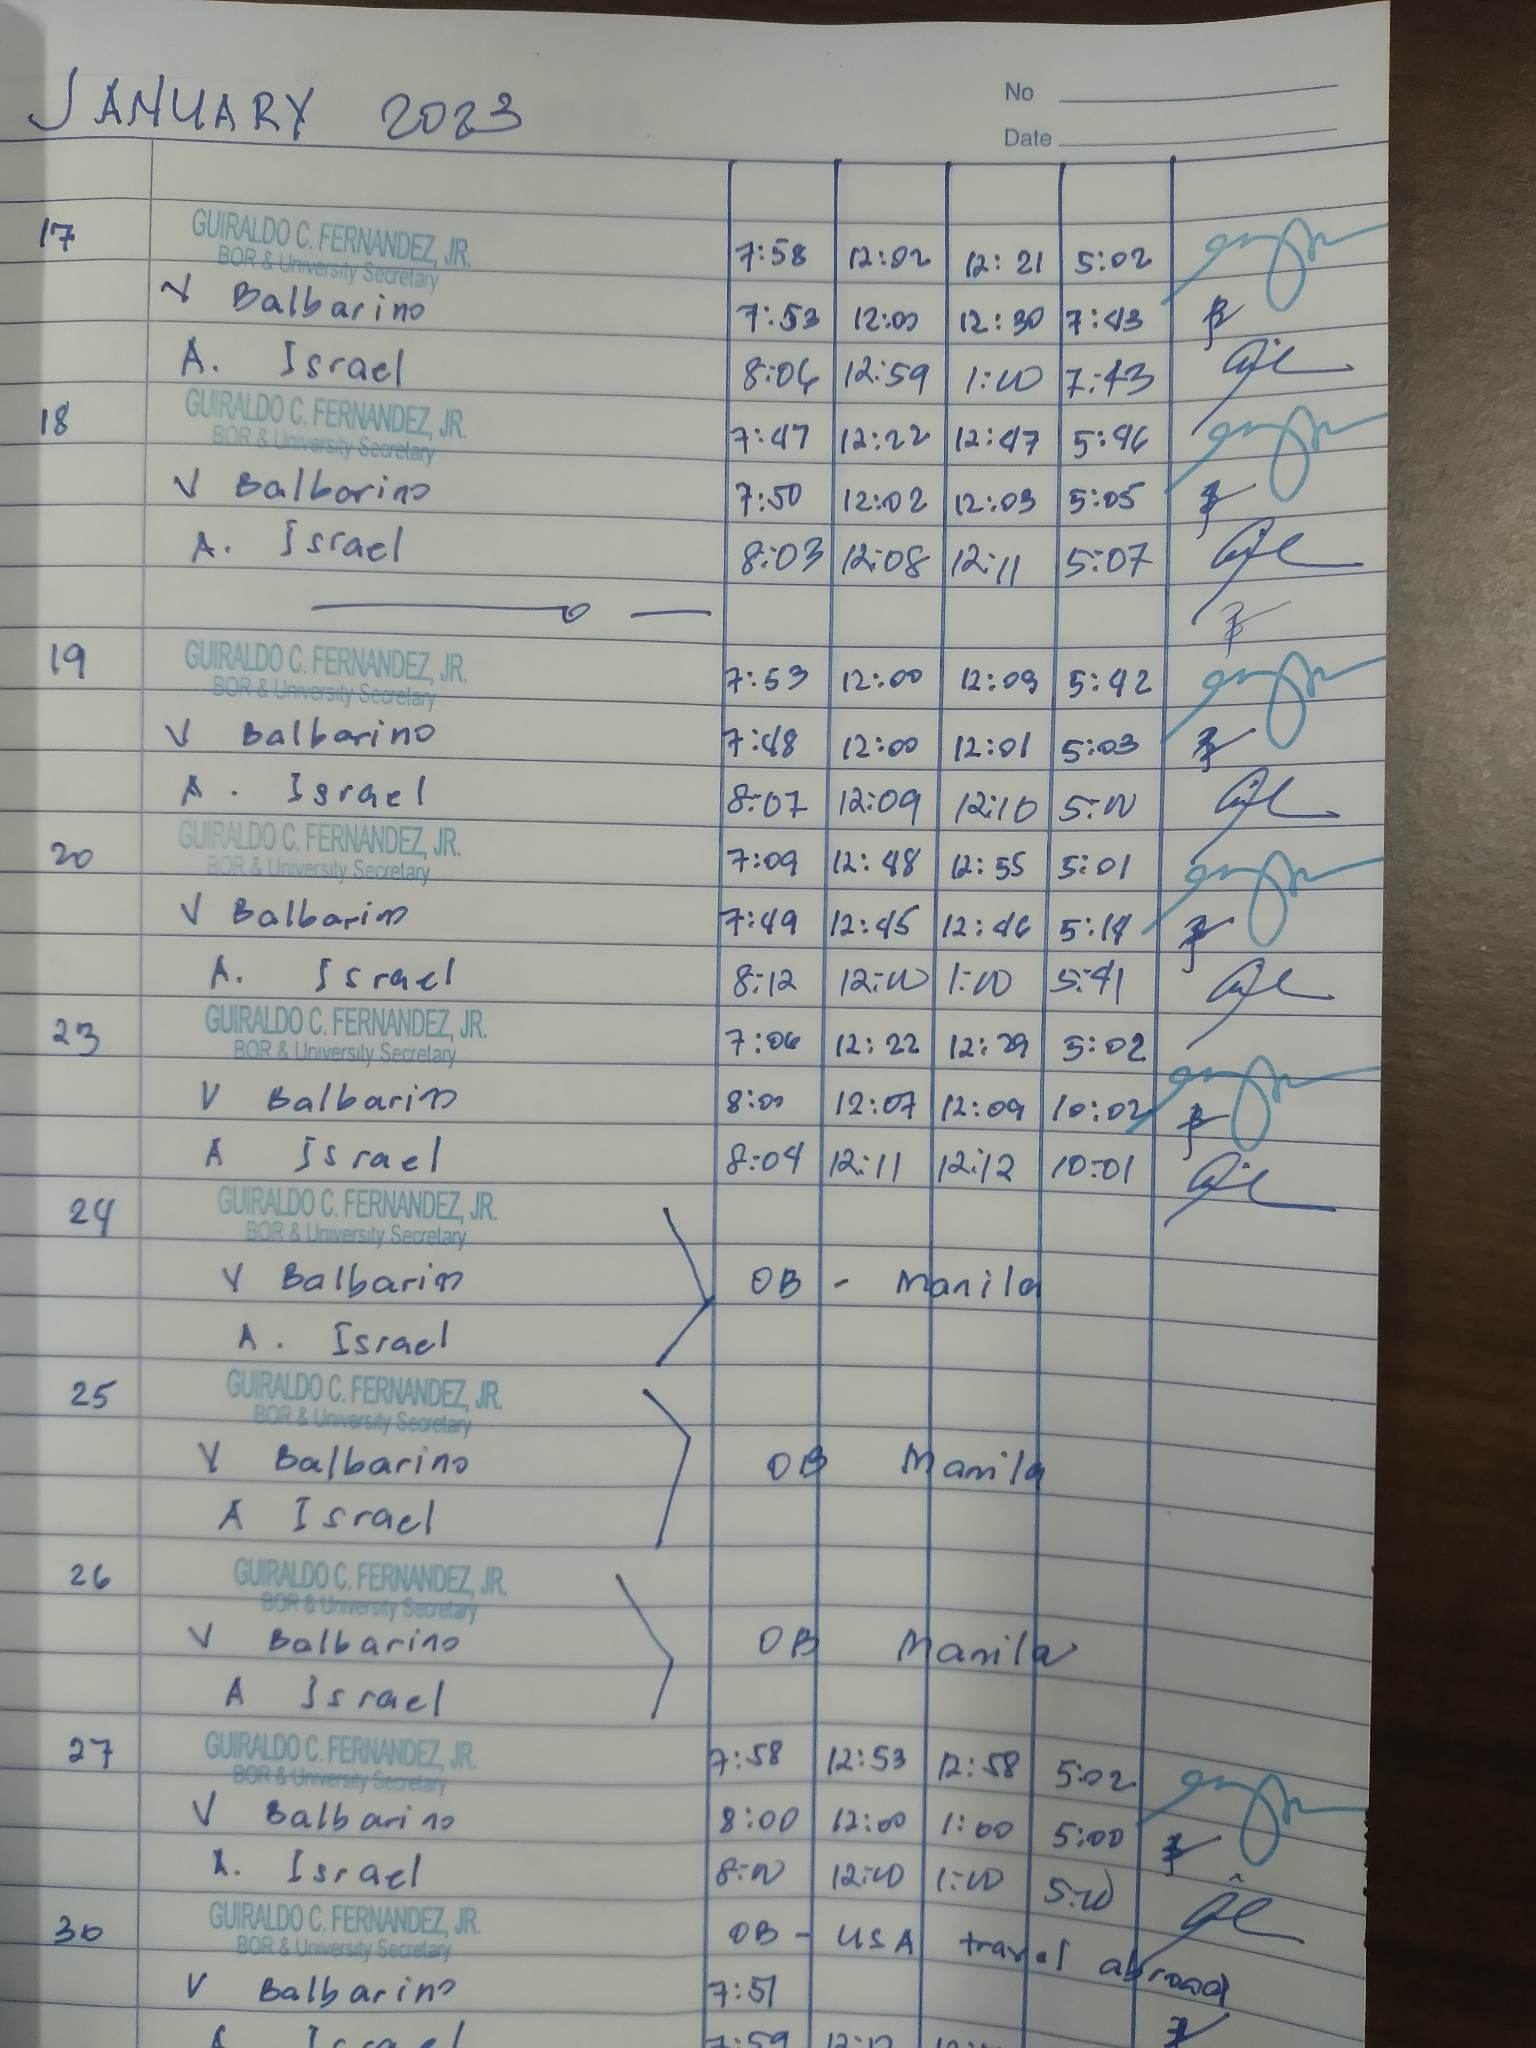 JANUARY 2023
No
Date
17 GUIRALDO C. FERNANDEZ, JR. 7:58 12:02 12:21 5:02
BOR & University Secretary
V Balbarino 7:53 12:00 12:30 7:43
A. Israel 8:06 12:59 1:00 7:43
18 GUIRALDO C. FERNANDEZ, JR. 7:47 12:22 12:47 5:46
BOR & University Secretary
V Balbarino 7:50 12:02 12:03 5:05
A. Israel 8:03 12:08 12:11 5:07
19 GUIRALDO C. FERNANDEZ, JR. 7:53 12:00 12:09 5:42
BOR & University Secretary
V Balbarino 7:48 12:00 12:01 5:03
A. Israel 8:07 12:09 12:10 5:00
20 GUIRALDO C. FERNANDEZ, JR. 7:09 12:48 12:55 5:01
BOR & University Secretary
V Balbarino 7:49 12:45 12:46 5:14
A. Israel 8:12 12:00 1:00 5:41
23 GUIRALDO C. FERNANDEZ, JR. 7:06 12:22 12:29 5:02
BOR & University Secretary
V Balbarino 8:00 12:07 12:09 10:02
A Israel 8:04 12:11 12:12 10:01
24 GUIRALDO C. FERNANDEZ, JR.
BOR & University Secretary
V Balbarino OB - Manila
A. Israel
25 GUIRALDO C. FERNANDEZ, JR.
BOR & University Secretary
V Balbarino OB Manila
A Israel
26 GUIRALDO C. FERNANDEZ, JR.
BOR & University Secretary
V Balbarino OB Manila
A Israel
27 GUIRALDO C. FERNANDEZ, JR. 7:58 12:53 12:58 5:02
BOR & University Secretary
V Balbarino 8:00 12:00 1:00 5:00
A. Israel 8:00 12:00 1:00 5:00
30 GUIRALDO C. FERNANDEZ, JR. OB - USA travel abroad
BOR & University Secretary
V Balbarino 7:51
A Israel 7:59 12:12